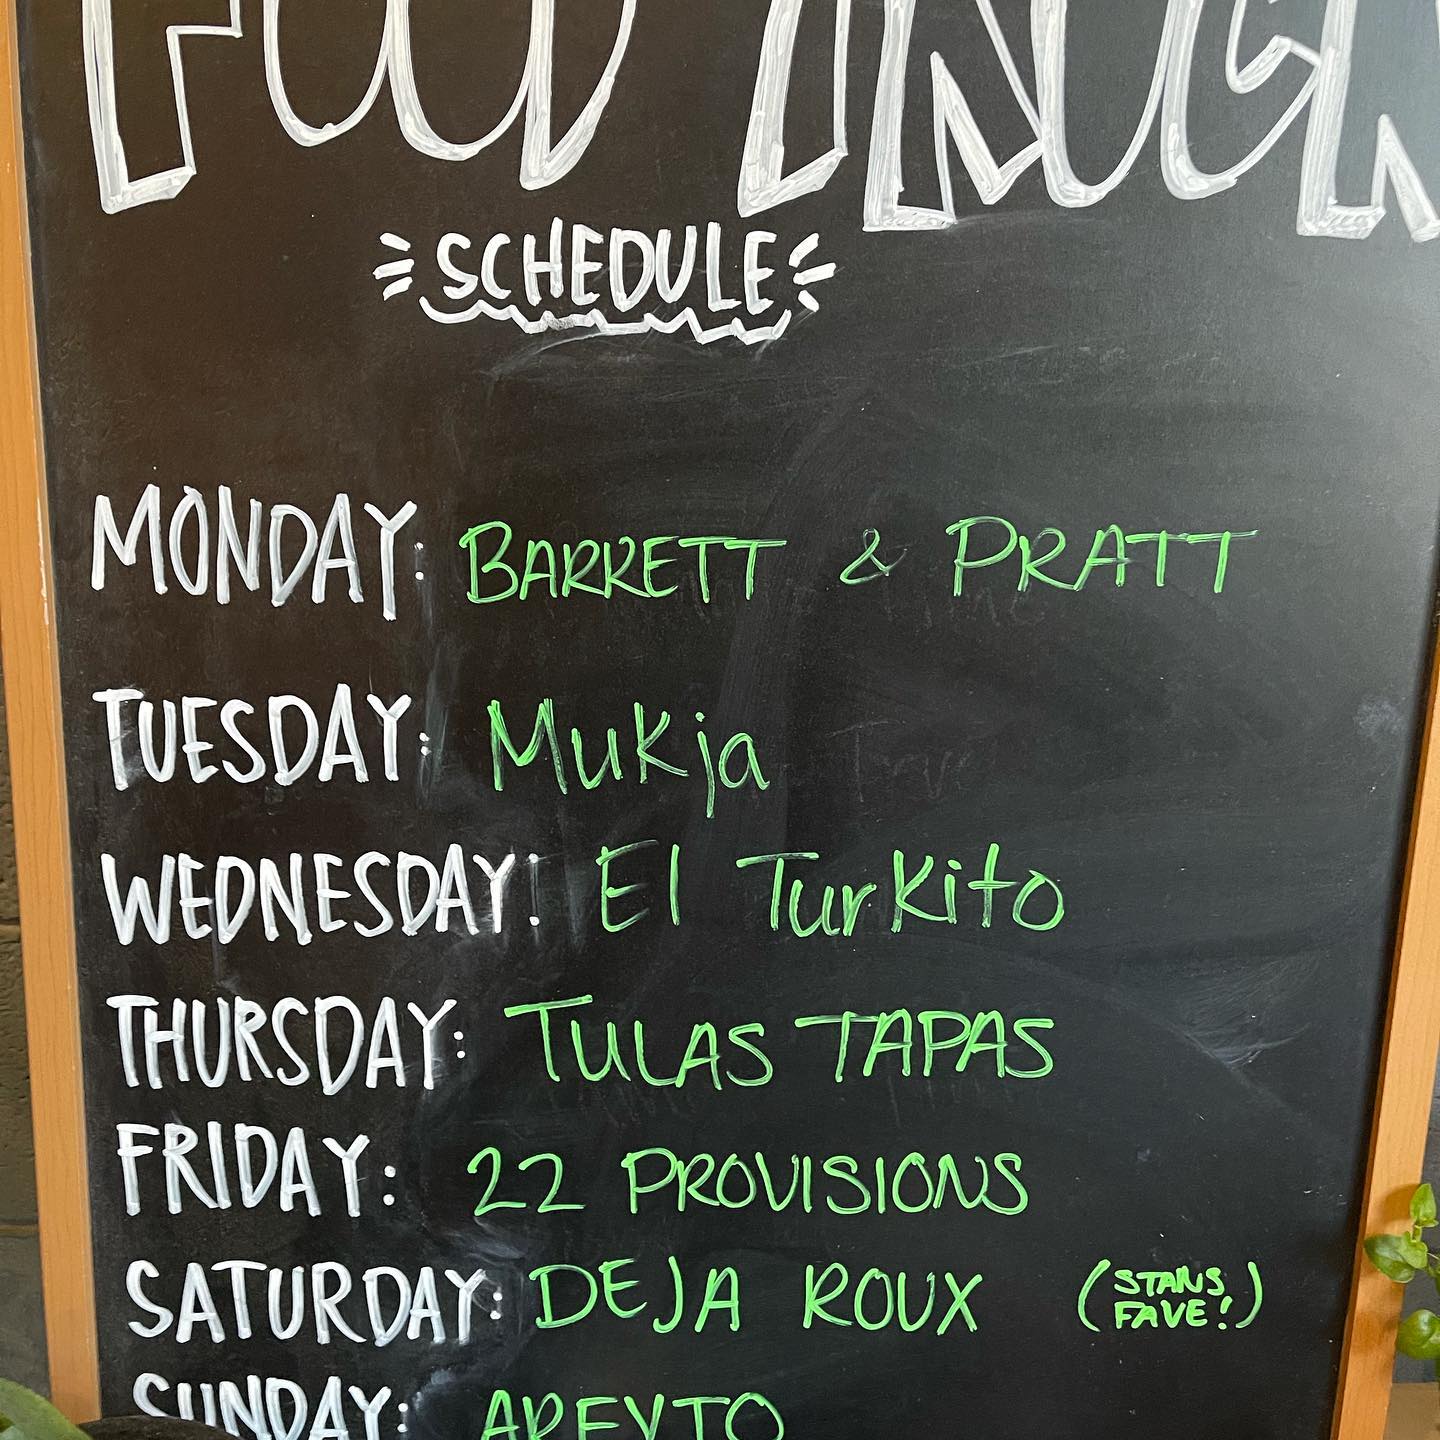 FOOD TRUCK
SCHEDULE
MONDAY: BARRETT & PRATT
TUESDAY: Mukja
WEDNESDAY: El Turkito
THURSDAY: TULAS TAPAS
FRIDAY: 22 PROVISIONS
SATURDAY: DEJA ROUX (STANS FAVE!)
SUNDAY: AREYTO